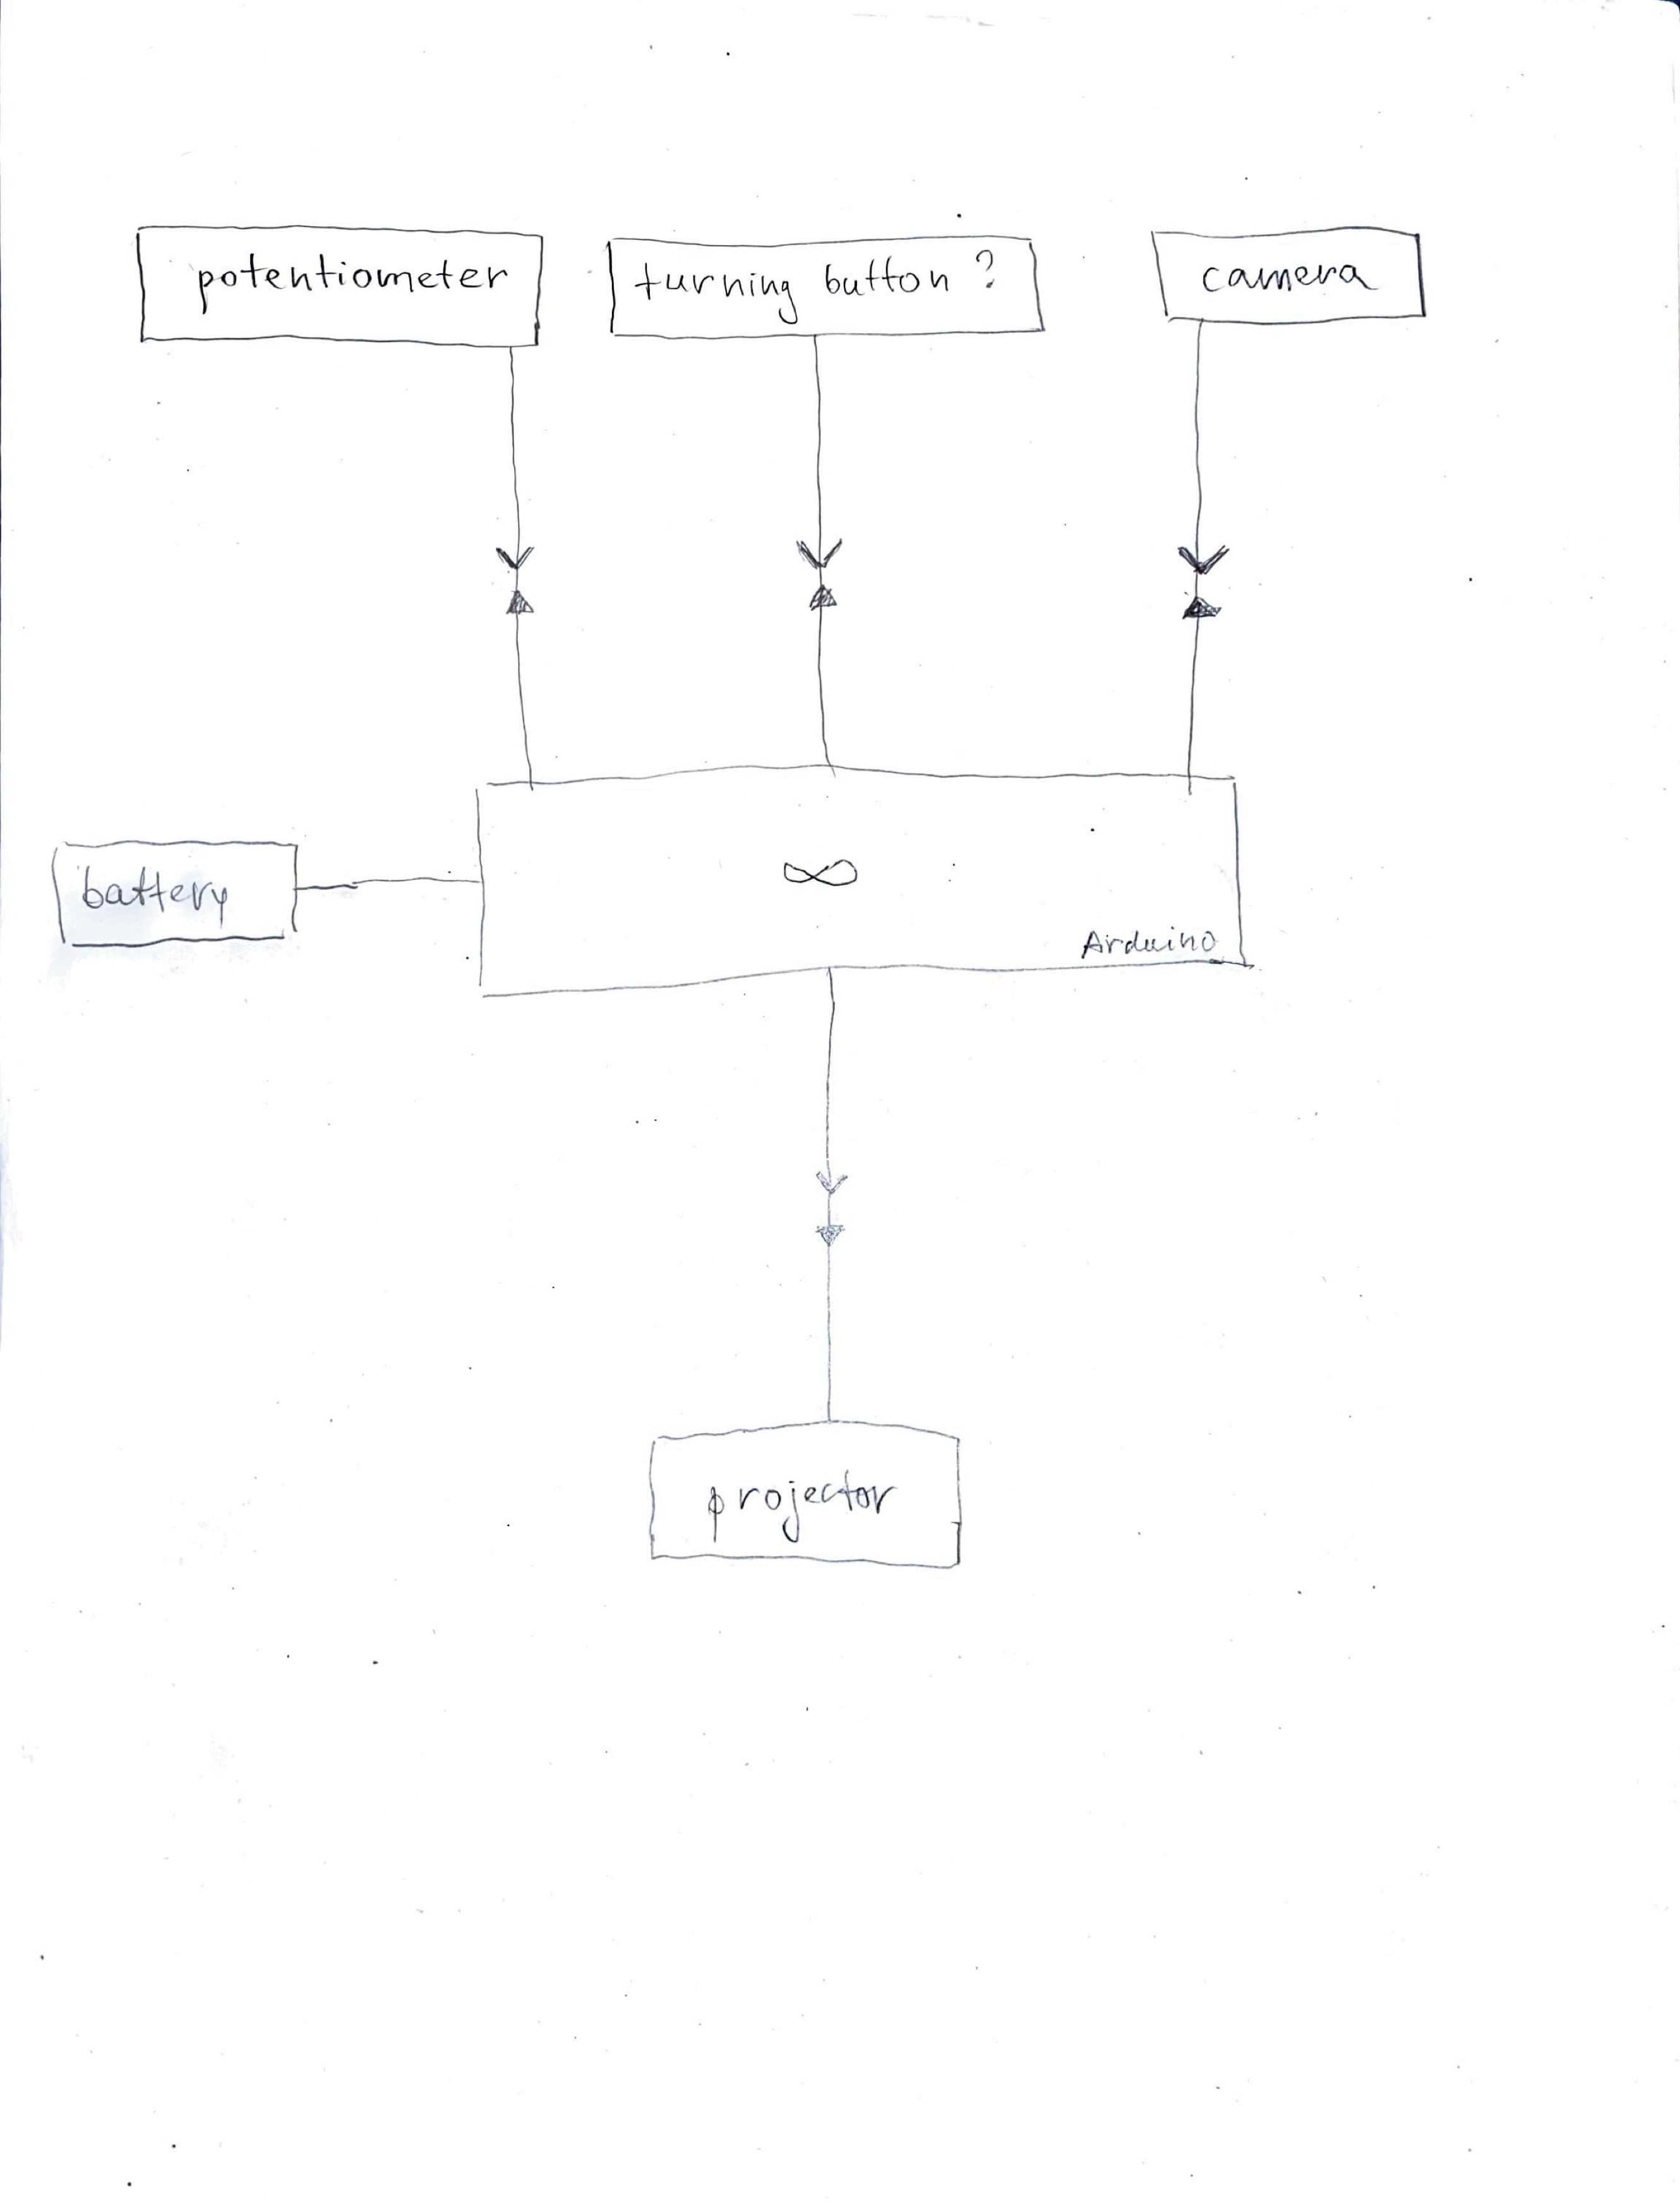 potentiometer
turning button ?
camera
battery
∞
Arduino
projector